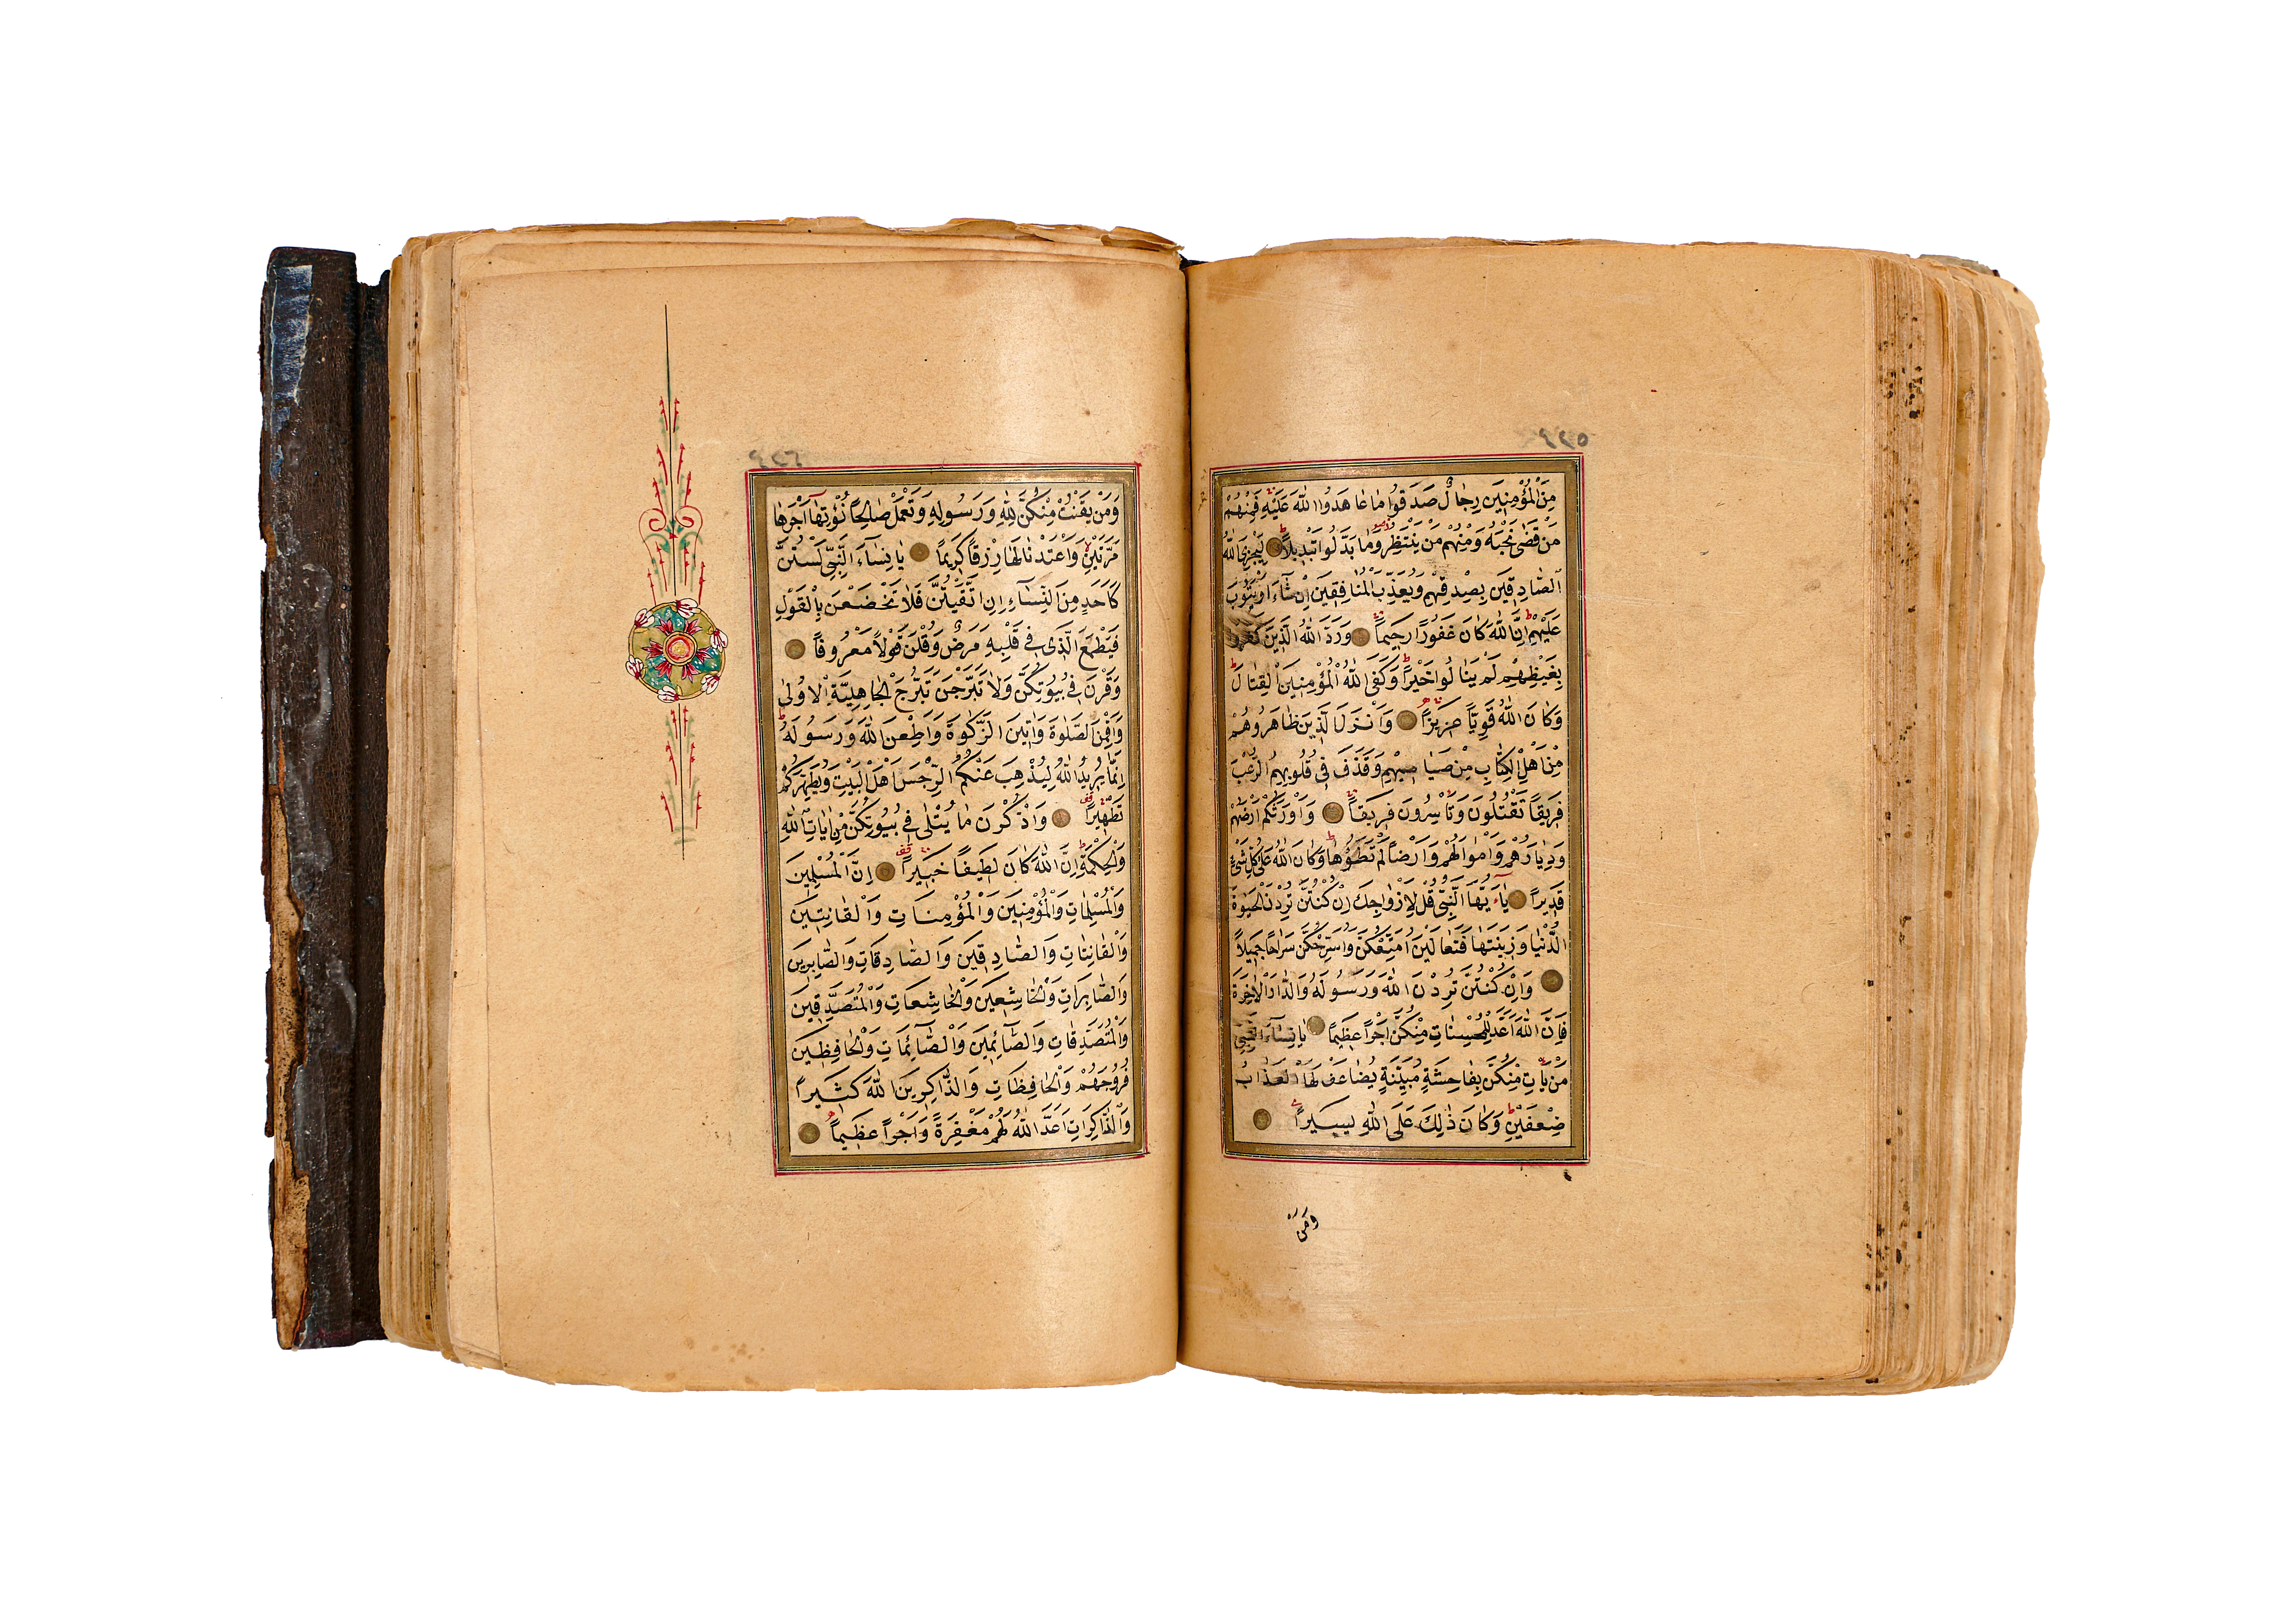 مِنَ الْمُؤْمِنِينَ رِجَالٌ صَدَقُوا مَا عَاهَدُوا اللّٰهَ عَلَيْهِ فَمِنْهُمْ
مَنْ قَضٰى نَحْبَهُ وَمِنْهُمْ مَنْ يَنْتَظِرُ وَمَا بَدَّلُوا تَبْدِيلاً لِيَجْزِيَ اللّٰهُ
الصَّادِقِينَ بِصِدْقِهِمْ وَيُعَذِّبَ الْمُنَافِقِينَ اِنْ شَاءَ اَوْ يَتُوبَ
عَلَيْهِمْ اِنَّ اللّٰهَ كَانَ غَفُورًا رَحِيمًا وَرَدَّ اللّٰهُ الَّذِينَ كَفَرُوا
بِغَيْظِهِمْ لَمْ يَنَالُوا خَيْرًا وَكَفَى اللّٰهُ الْمُؤْمِنِينَ الْقِتَالَ
وَكَانَ اللّٰهُ قَوِيًّا عَزِيزًا وَاَنْزَلَ الَّذِينَ ظَاهَرُوهُمْ
مِنْ اَهْلِ الْكِتَابِ مِنْ صَيَاصِيهِمْ وَقَذَفَ فِي قُلُوبِهِمُ الرُّعْبَ
فَرِيقًا تَقْتُلُونَ وَتَأْسِرُونَ فَرِيقًا وَاَوْرَثَكُمْ اَرْضَهُمْ
وَدِيَارَهُمْ وَاَمْوَالَهُمْ وَاَرْضًا لَمْ تَطَؤُهَا وَكَانَ اللّٰهُ عَلٰى كُلِّ شَيْءٍ
قَدِيرًا يَاءَيُّهَا النَّبِيُّ قُلْ لِاَزْوَاجِكَ اِنْ كُنْتُنَّ تُرِدْنَ الْحَيٰوةَ
الدُّنْيَا وَزِينَتَهَا فَتَعَالَيْنَ اُمَتِّعْكُنَّ وَاُسَرِّحْكُنَّ سَرَاحًا جَمِيلاً
وَاِنْ كُنْتُنَّ تُرِدْنَ اللّٰهَ وَرَسُولَهُ وَالدَّارَ الْاٰخِرَةَ
فَاِنَّ اللّٰهَ اَعَدَّ لِلْمُحْسِنَاتِ مِنْكُنَّ اَجْرًا عَظِيمًا يَا نِسَاءَ النَّبِيِّ
مَنْ يَأْتِ مِنْكُنَّ بِفَاحِشَةٍ مُبَيِّنَةٍ يُضَاعَفْ لَهَا الْعَذَابُ
ضِعْفَيْنِ وَكَانَ ذٰلِكَ عَلَى اللّٰهِ يَسِيرًا
وَمَنْ
وَمَنْ يَقْنُتْ مِنْكُنَّ لِلّٰهِ وَرَسُولِهِ وَتَعْمَلْ صَالِحًا نُؤْتِهَا اَجْرَهَا
مَرَّتَيْنِ وَاَعْتَدْنَا لَهَا رِزْقًا كَرِيمًا يَا نِسَاءَ النَّبِيِّ لَسْتُنَّ
كَاَحَدٍ مِنَ النِّسَاءِ اِنِ اتَّقَيْتُنَّ فَلَا تَخْضَعْنَ بِالْقَوْلِ
فَيَطْمَعَ الَّذِي فِي قَلْبِهِ مَرَضٌ وَقُلْنَ قَوْلاً مَعْرُوفًا
وَقَرْنَ فِي بُيُوتِكُنَّ وَلَا تَبَرَّجْنَ تَبَرُّجَ الْجَاهِلِيَّةِ الْاُولٰى
وَاَقِمْنَ الصَّلٰوةَ وَاٰتِينَ الزَّكٰوةَ وَاَطِعْنَ اللّٰهَ وَرَسُولَهُ
اِنَّمَا يُرِيدُ اللّٰهُ لِيُذْهِبَ عَنْكُمُ الرِّجْسَ اَهْلَ الْبَيْتِ وَيُطَهِّرَكُمْ
تَطْهِيرًا وَاذْكُرْنَ مَا يُتْلٰى فِي بُيُوتِكُنَّ مِنْ اٰيَاتِ اللّٰهِ
وَالْحِكْمَةِ اِنَّ اللّٰهَ كَانَ لَطِيفًا خَبِيرًا اِنَّ الْمُسْلِمِينَ
وَالْمُسْلِمَاتِ وَالْمُؤْمِنِينَ وَالْمُؤْمِنَاتِ وَالْقَانِتِينَ
وَالْقَانِتَاتِ وَالصَّادِقِينَ وَالصَّادِقَاتِ وَالصَّابِرِينَ
وَالصَّابِرَاتِ وَالْخَاشِعِينَ وَالْخَاشِعَاتِ وَالْمُتَصَدِّقِينَ
وَالْمُتَصَدِّقَاتِ وَالصَّائِمِينَ وَالصَّائِمَاتِ وَالْحَافِظِينَ
فُرُوجَهُمْ وَالْحَافِظَاتِ وَالذَّاكِرِينَ اللّٰهَ كَثِيرًا
وَالذَّاكِرَاتِ اَعَدَّ اللّٰهُ لَهُمْ مَغْفِرَةً وَاَجْرًا عَظِيمًا